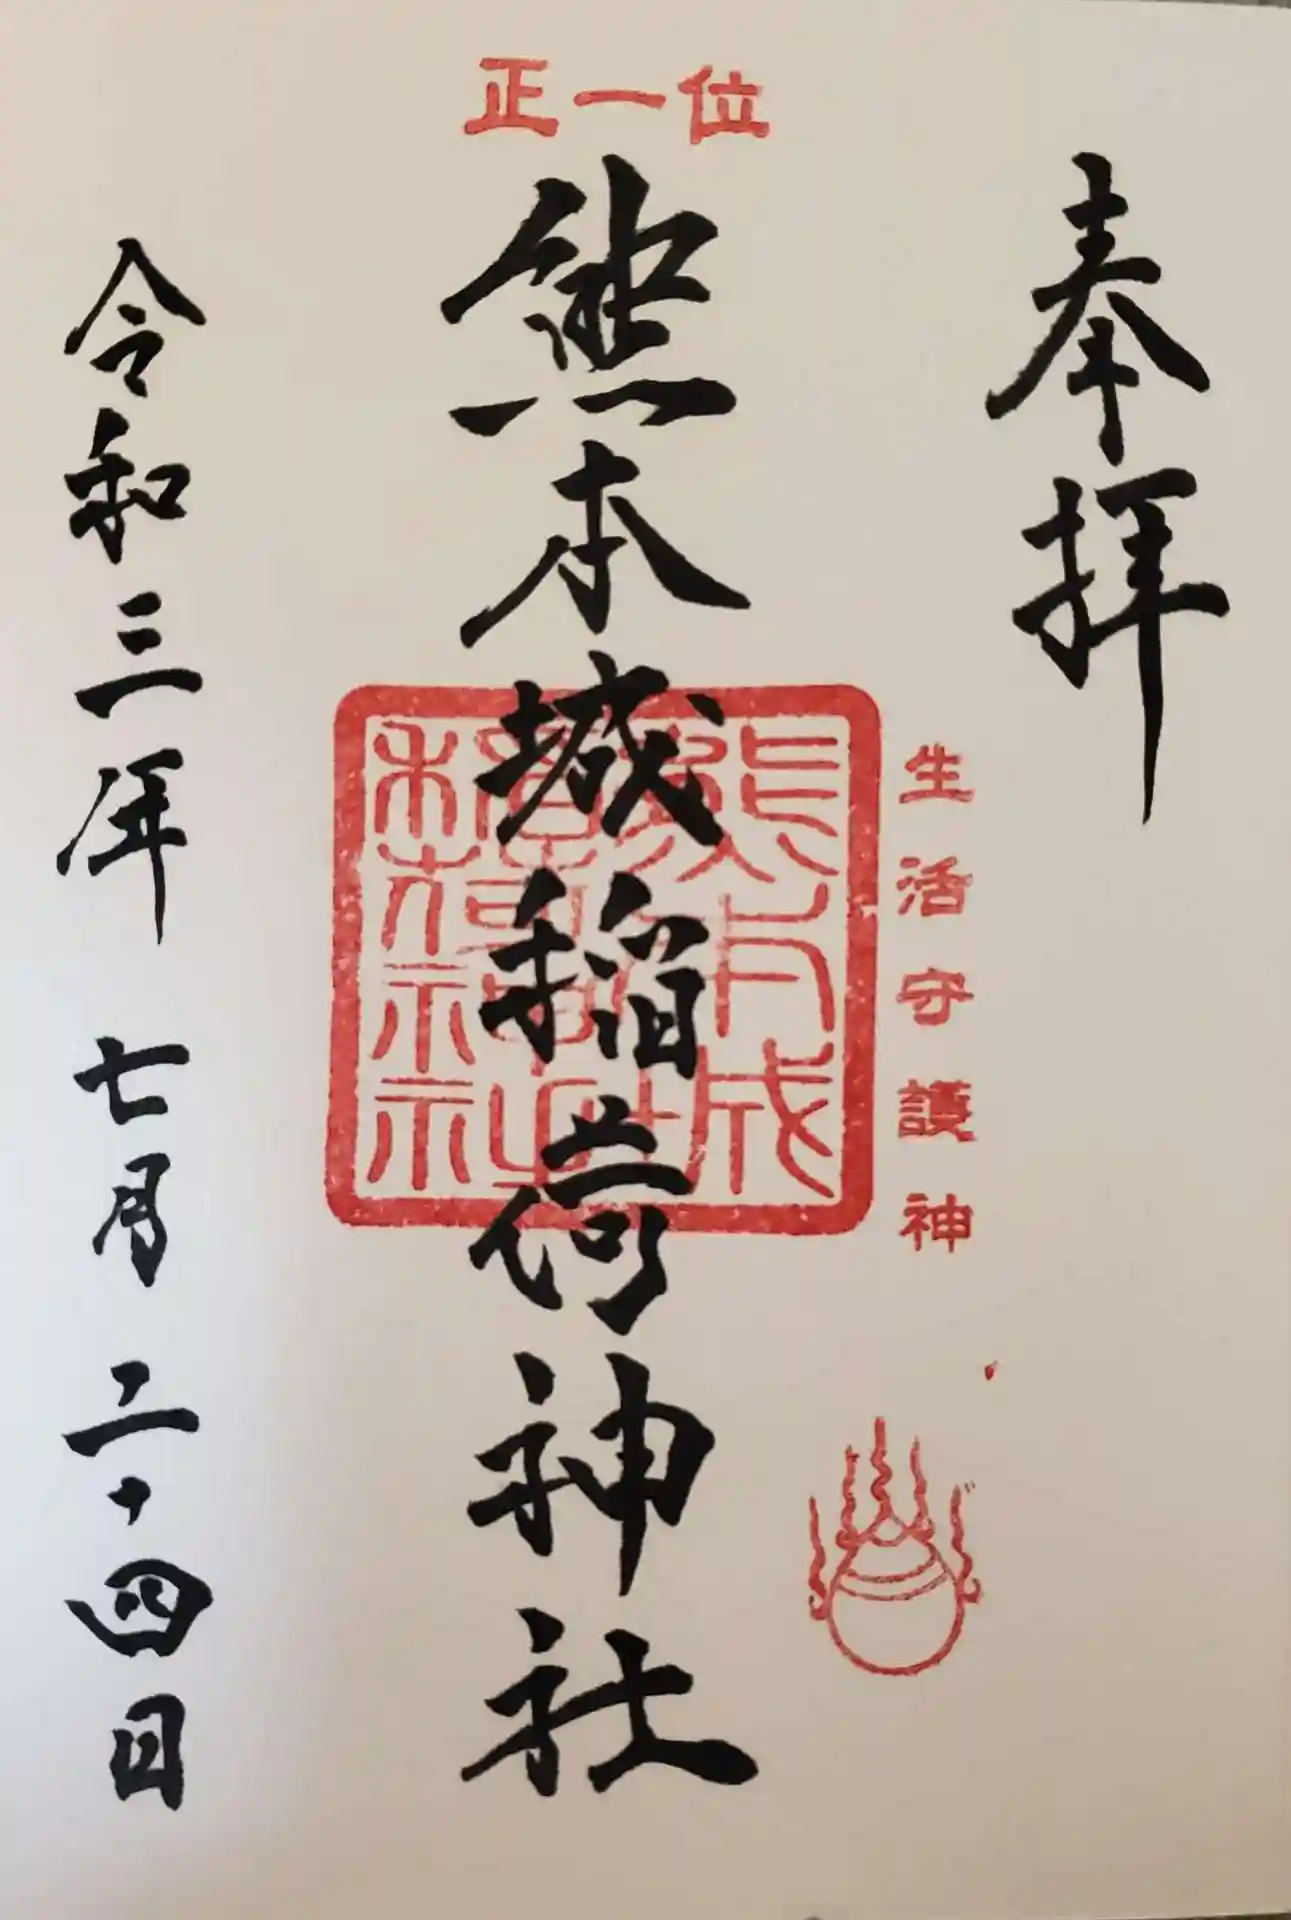 奉拝
生活守護神
正一位
熊本城稲荷神社
令和三年 七月 二十四日